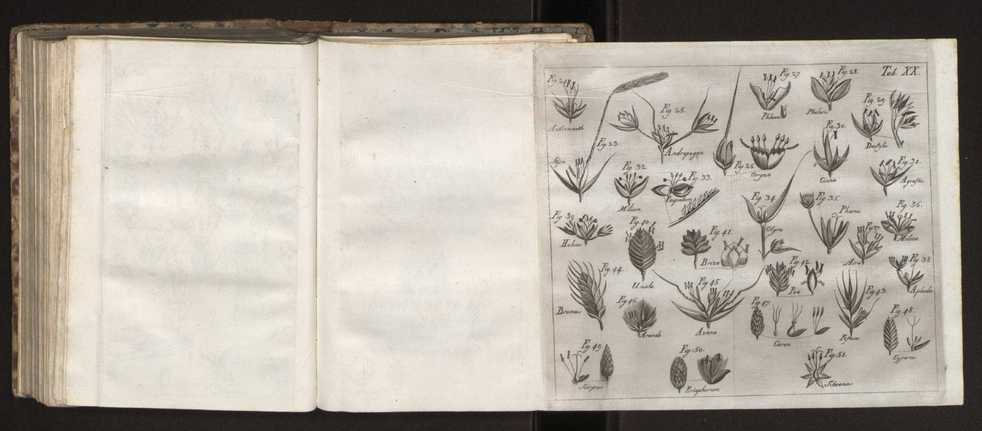 Tab. XX.
Fig. 27.
Fig. 28.
Phleum
Phalaris
Fig. 29.
Fig. 25.
Andropogon
Fig. 23.
Fig. 30.
Cinna
Fig. 26.
Oryza
Fig. 31.
Agrostis
Fig. 32.
Milium
Fig. 33.
Paspalum
Fig. 34.
Olyra
Fig. 35.
Pharus
Fig. 36.
Melica
Fig. 39.
Holcus
Fig. 40.
Uniola
Fig. 41.
Briza
Fig. 42.
Poa
Fig. 38.
Fig. 44.
Bromus
Fig. 45.
Avena
Fig. 46.
Arundo
Fig. 47.
Carex
Fig. 43.
Fig. 48.
Fig. 49.
Fig. 50.
Eriophorum
Fig. 51.